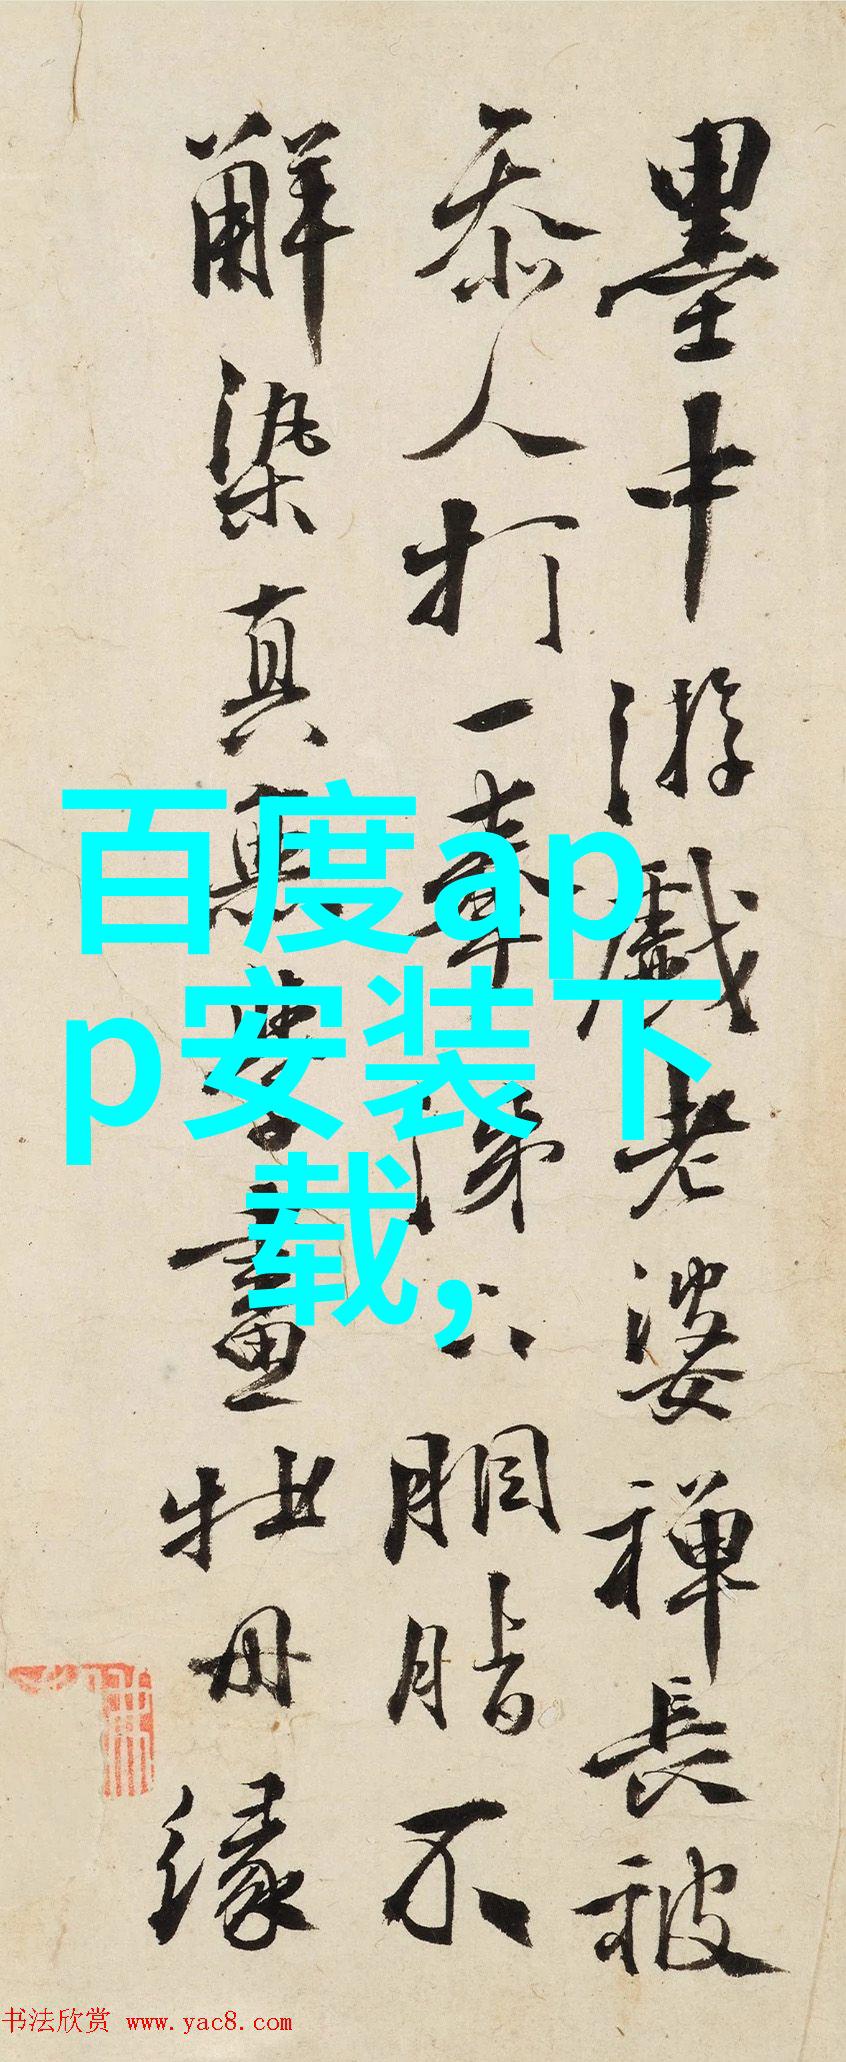 墨中游戲老婆禪長被
叅人打一拳涕下胭脂不
解染真無學畫牡丹緣
百度ap
p安装下
载,
书法欣赏 www.yac8.com